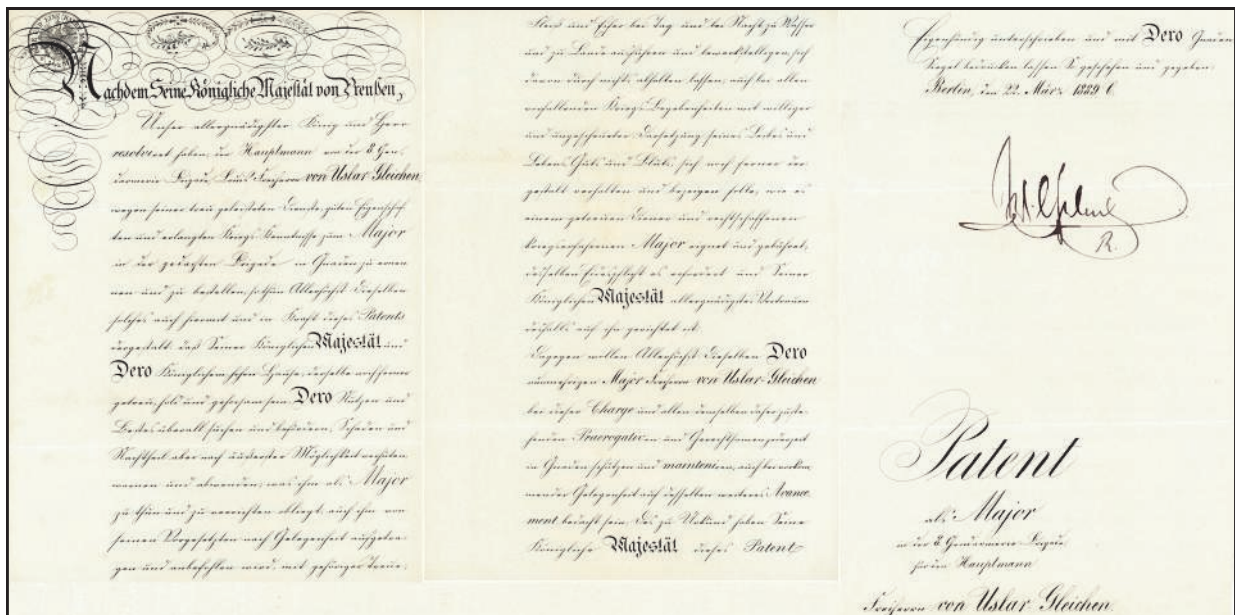 Nachdem Seine Königliche Majestät von Preußen,
Unser allergnädigster König und Herr
resolviret haben, den Hauptmann von der 8. Gen,,
darmerie Brigade, Louis Freiherrn von Uslar Gleichen,
wegen seiner treu geleisteten Dienste, guten Eigenschaf,,
ten und erlangten Kriegs Kenntnisse zum Major
in der gedachten Brigade in Gnaden zu ernen,,
nen und zu bestellen, so thun Allerhöchst Dieselben
solches auch hiermit und in Kraft dieses Patents
dergestalt, daß Seiner Königlichen Majestät und
Dero Königlichem hohen Hause, derselbe noch ferner
getreu, hold und gehorsam sein, Dero Nutzen und
Bestes überall suchen und befördern, Schaden und
Nachtheil aber nach äußerster Möglichkeit verhüten,
warnen und abwenden, was ihm als Major
zu thun und zu verrichten obliegt, auch ihm von
seinen Vorgesetzten nach Gelegenheit aufgetra,,
gen und anbefohlen wird, mit gehöriger Treue,
Fleiß und Eifer bei Tag und bei Nacht, zu Wasser
und zu Lande ausführen und bewerkstelligen, sich
davon durch nichts abhalten lassen, auch bei allen
vorfallenden Kriegs Begebenheiten mit williger
und ungescheueter Darsetzung seines Leibes und
Lebens, Guts und Bluts, sich noch ferner der,,
gestalt verhalten und bezeigen solle, wie es
einem getreuen Diener und rechtschaffenen
kriegserfahrenen Major eignet und gebühret,
desselben Eidespflicht es erfordert und Seiner
Königlichen Majestät allergnädigstes Vertrauen
desfalls auf ihn gerichtet ist.
Dagegen wollen Allerhöchst Dieselben Dero
nunmehrigen Major Freiherrn von Uslar Gleichen
bei dieser Charge und allen demselben daher zuste,,
henden Praerogativen und Gerechtsamen jederzeit
in Gnaden schützen und mainteniren, auch bei vorkom,,
mender Gelegenheit auf desselben weiteres Avance,,
ment bedacht sein. Des zu Urkund haben Seine
Königliche Majestät dieses Patent
Eigenhändig unterschrieben und mit Dero Gnaden
Siegel bedrucken lassen. So geschehen und gegeben,
Berlin, den 22. März 1889.
Wilhelm
R.
Patent
als Major
in der 8. Gendarmerie Brigade
für den Hauptmann
Freiherrn von Uslar Gleichen.